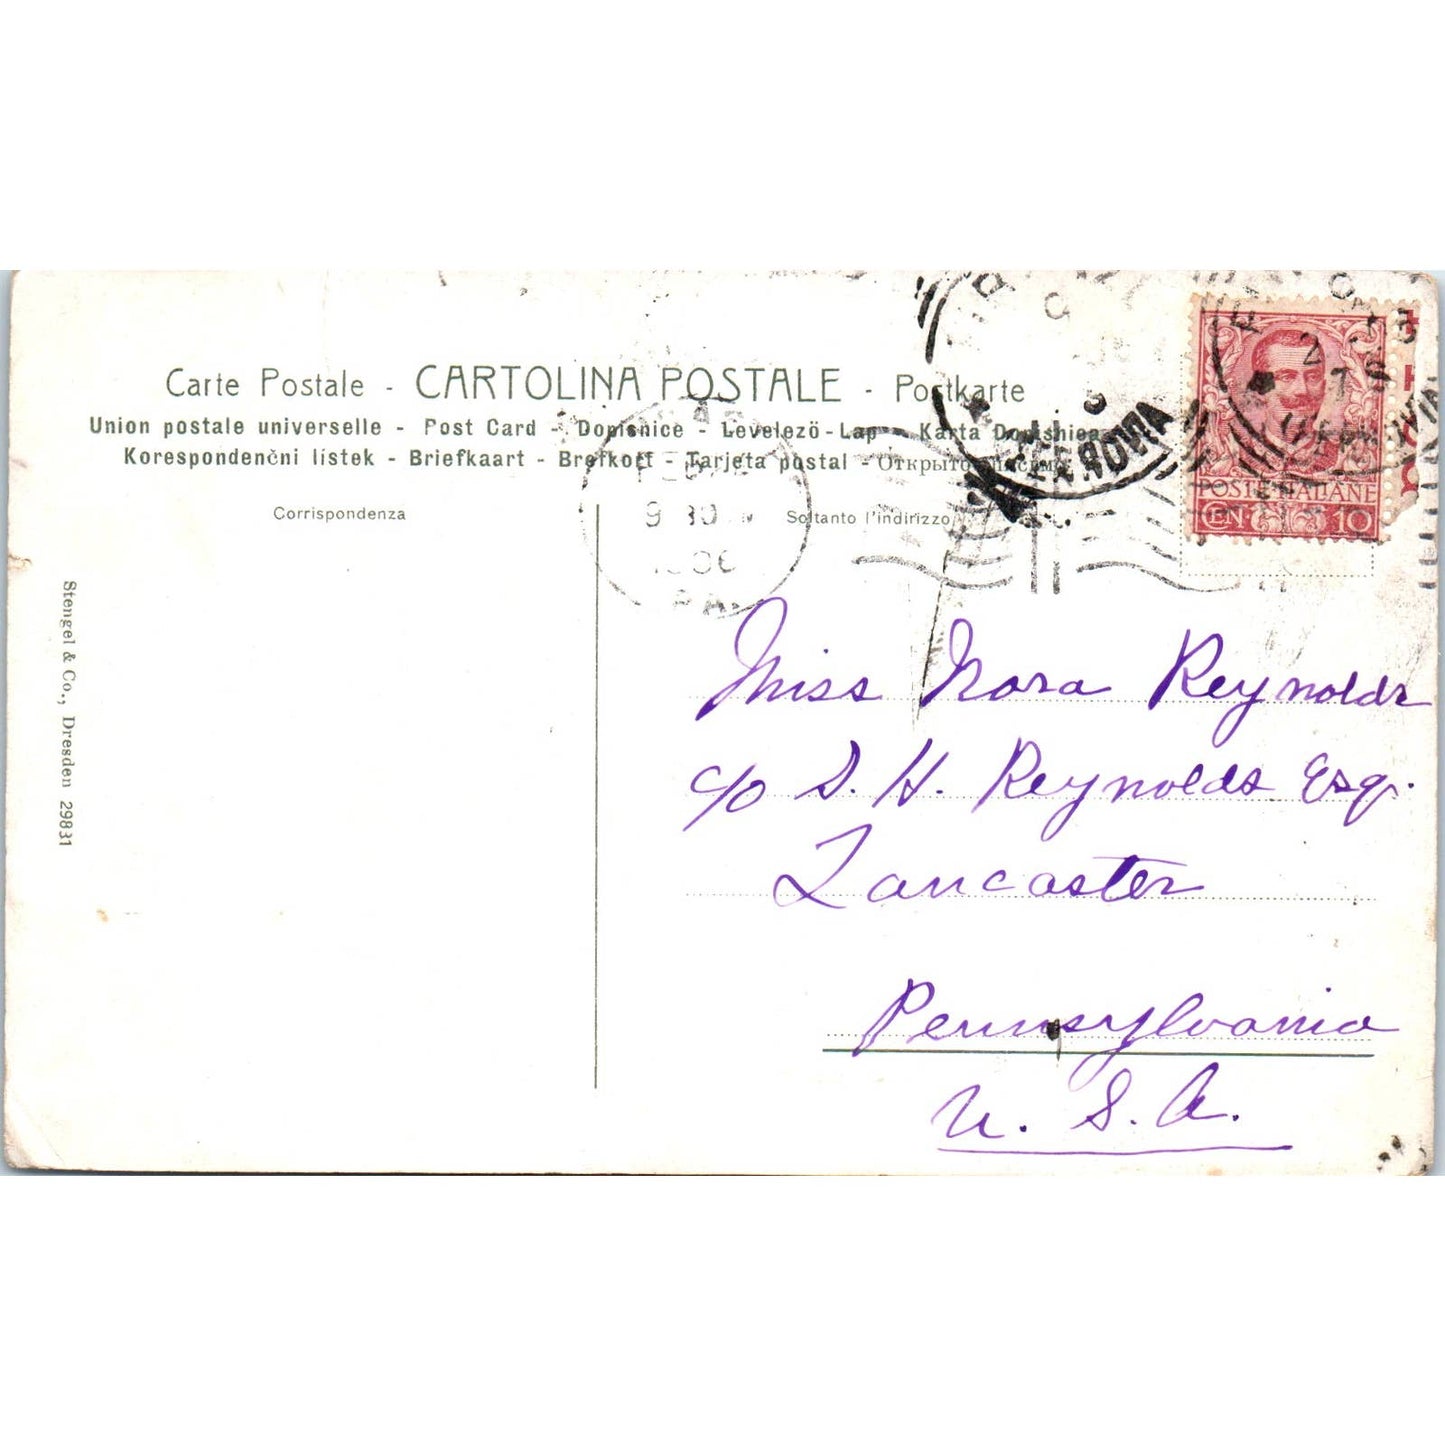 Carte Postale - CARTOLINA POSTALE - Postkarte
Union postale universelle - Post Card - Dopisnice - Levelezö-Lap - Karta Dopisnica
Korespondenčni listek - Briefkaart - Brefkort - Tarjeta postal - Открытое письмо
Corrispondenza
Soltanto l'indirizzo
FERROVIA
POSTE ITALIANE
CEN 10
9 30
1906
PA.
Stengel & Co., Dresden 29831
Miss Nora Reynolds
c/o S. H. Reynolds Esq.
Lancaster
Pennsylvania
U. S. A.